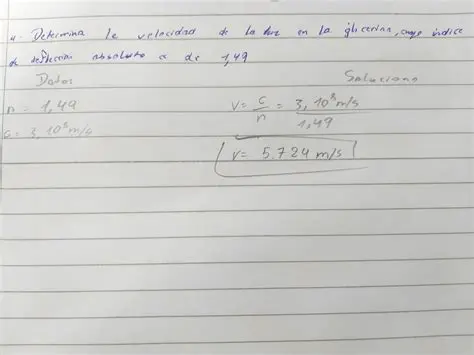 4. Determina la velocidad de la luz en la glicerina, cuyo índice
de refracción absoluto es de 1,49
Datos
Soluciono
n = 1,49
c = 3, 10⁸ m/s
v = c/n = 3, 10⁸ m/s / 1,49
v = 5.724 m/s